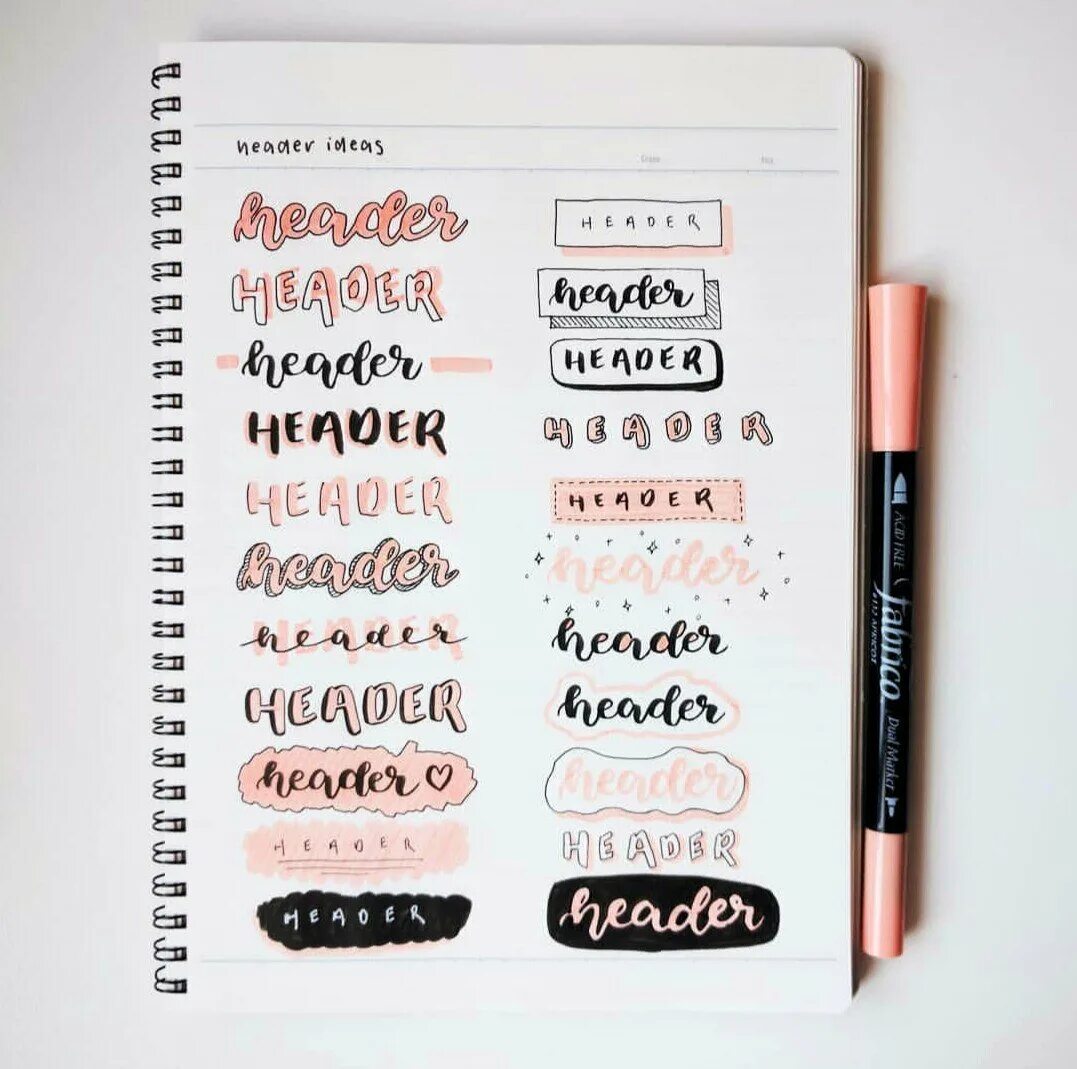 header ideas
Date
No.
header
HEADER
header
HEADER
HEADER
header
HEADER
header
HEADER
header ♡
HEADER
HEADER
HEADER
header
HEADER
HEADER
HEADER
header
header
header
header
HEADER
header
ACID FREE
fabrico
#112 APRICOT
Dual Marker